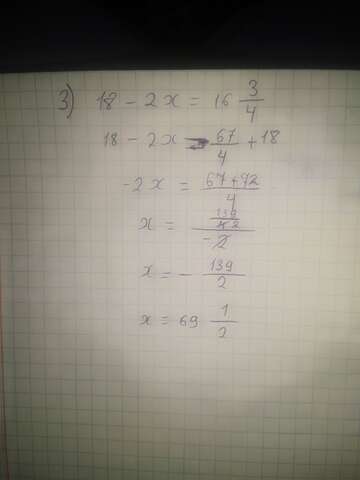 3) 18 - 2x = 16 3/4
18 - 2x = 67/4 + 18
-2x = (67+92)/4
x = (139/4 2)/-2
x = - 139/2
x = 69 1/2